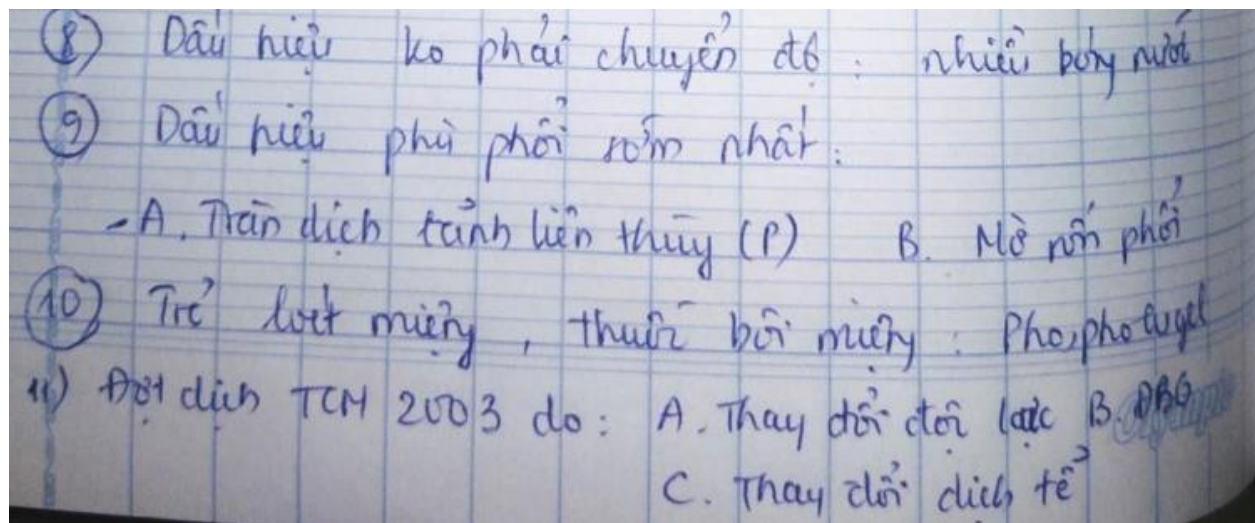 ⑧ Dấu hiệu ko phải chuyển độ : nhiều bóng nước
⑨ Dấu hiệu phù phổi sớm nhất :
- A. Tràn dịch rãnh liên thùy (P) B. Mờ rốn phổi
⑩ Trẻ loét miệng , thuốc bôi miệng : Phosphalugel
11) Đợt dịch TCM 2003 do : A. Thay đổi độc lực B.
C. Thay đổi dịch tể